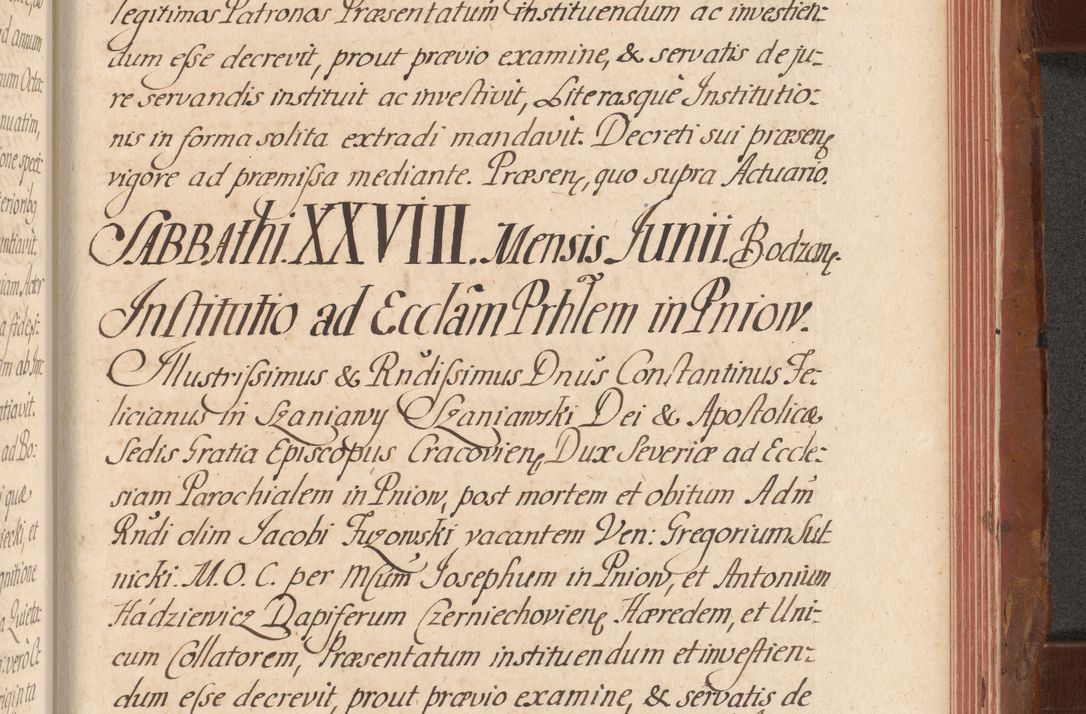 legitimos Patronos Præsentatum instituendum ac investien:
dum esse decrevit, prout prævio examine, & servatis de ju:
re servandis instituit ac investivit, Literasquè Institutio:
nis in forma solita extradi mandavit. Decreti sui præsenę
vigore ad præmissa mediante. Præsenę, quo supra Actuario.
SABBAthi. XXVIII. Mensis Junii. Bodzanę.
Institutio ad Ecclâm Prhlem in Pniow.
Illustrissimus & Rñdissimus Dnus Constantinus Fe:
licianus in Szaniawy Szaniawski Dei & Apostolicæ
Sedis Gratia Episcopus Cracovienę, Dux Severiæ ad Eccle:
siam Parochialem in Pniow, post mortem et obitum Adm̃
Rñdi olim Jacobi Fuzowski vacantem Ven: Gregorium Sut
nicki. M. O. C. per Mcum Josephum in Pniow, et Antonium
Hádziewicz Dapiferum Czerniechovienę Hæredem, et Uni:
cum Collatorem, Præsentatum instituendum et investien:
dum esse decrevit, prout prævio examine, & servatis de